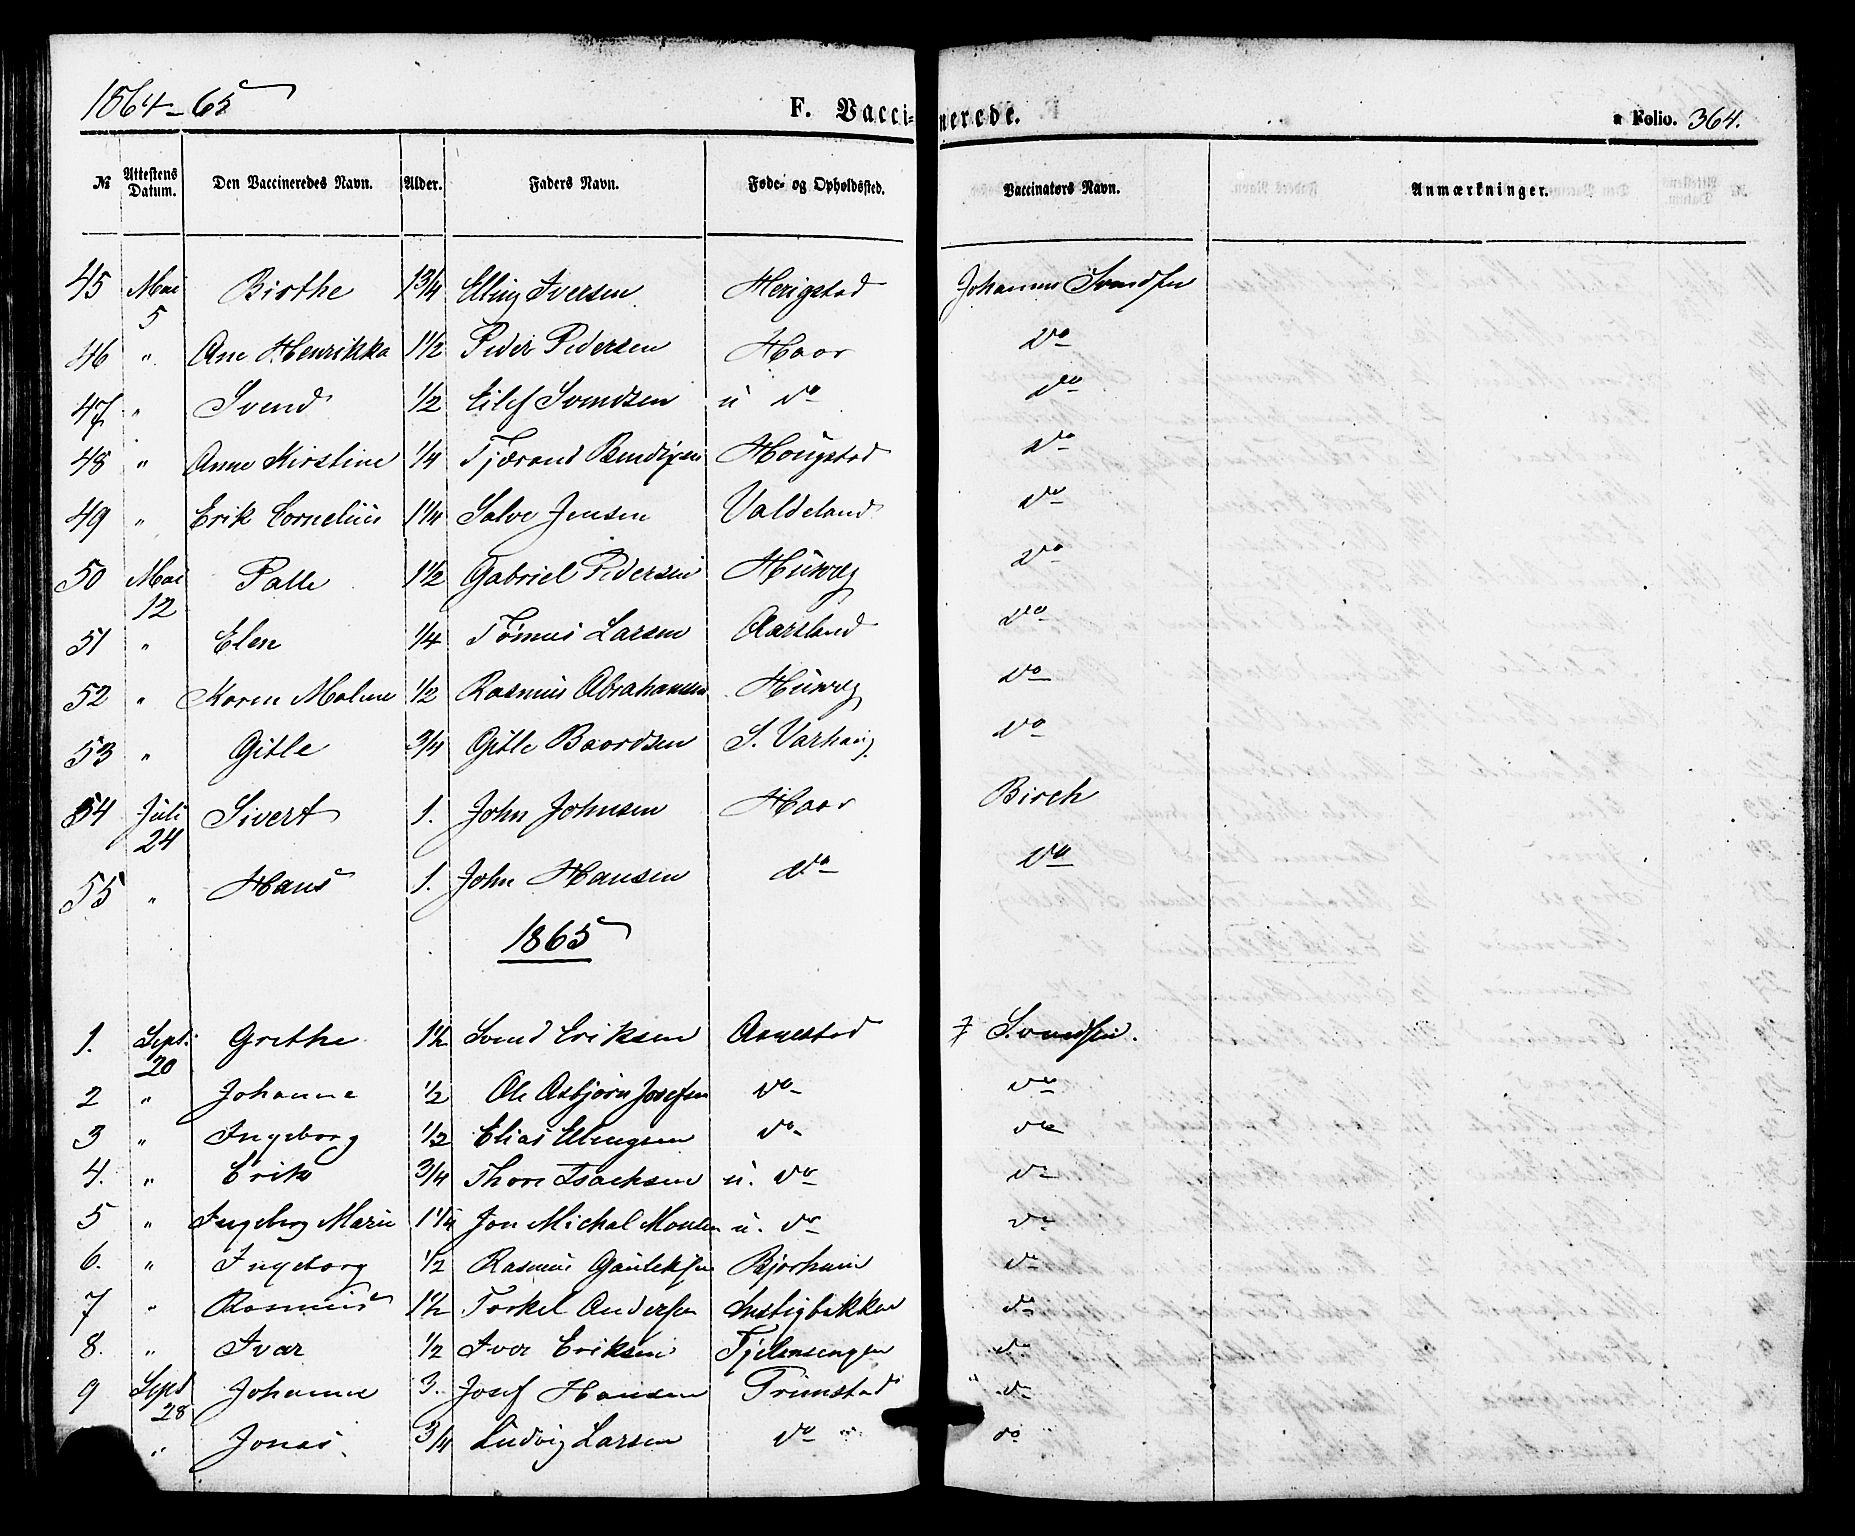 1864-65
F. Vaccinerede. Folio. 364.
№ Attestens Datum. Den Vaccineredes Navn. Alder. Faders Navn. Føde- og Opholdssted. Vaccinators Navn. Anmærkninger.
45 Mai 5 Birthe 1 3/4 Elling Iversen Herigstad Johannes Svendsen
46 " Ane Henrikka 1 1/2 Peder Pedersen Haar do
47 " Svend 1/2 Eilef Svendsen u do do
48 " Anne Kirstine 1/4 Tjærand Bendigsen Høugstad do
49 " Erik Cornelius 1 1/4 Salve Jensen Valdeland do
50 Mai 12 Palle 1 1/2 Gabriel Pedersen do
51 " Elen 1/4 Tønnes Larsen Aarsland do
52 " Karen Malene 1/2 Rasmus Abrahamsen do
53 " Gitle 3/4 Gitle Baardsen S. Varhaug do
54 Juli 24 Sivert 1. John Johnsen Haar Birch
55 " Hans 1. John Hansen do do
1865
1. Sept: 20 Grethe 1 1/2 Svend Eriksen Aanestad Svendsen.
2 " Johanne 1/2 Ole Asbjørn Josefsen do do
3 " Ingeborg 1/2 Elias Ellingsen do do
4. " Erik 3/4 Thore Isachsen u. do do
5 " Ingeborg Marie 1 1/4 Jon Michal u. do do
6. " Ingeborg 1/2 Rasmus Gauteksen Bjorhuim do
7 " Rasmus 1 1/2 Torkel Andersen do
8. " Ivar 1/2 Iver Eriksen do
9 Sept 28 Johanne 3. Josef Hansen do
" Jonas. 3/4 Ludvig Larsen do " do